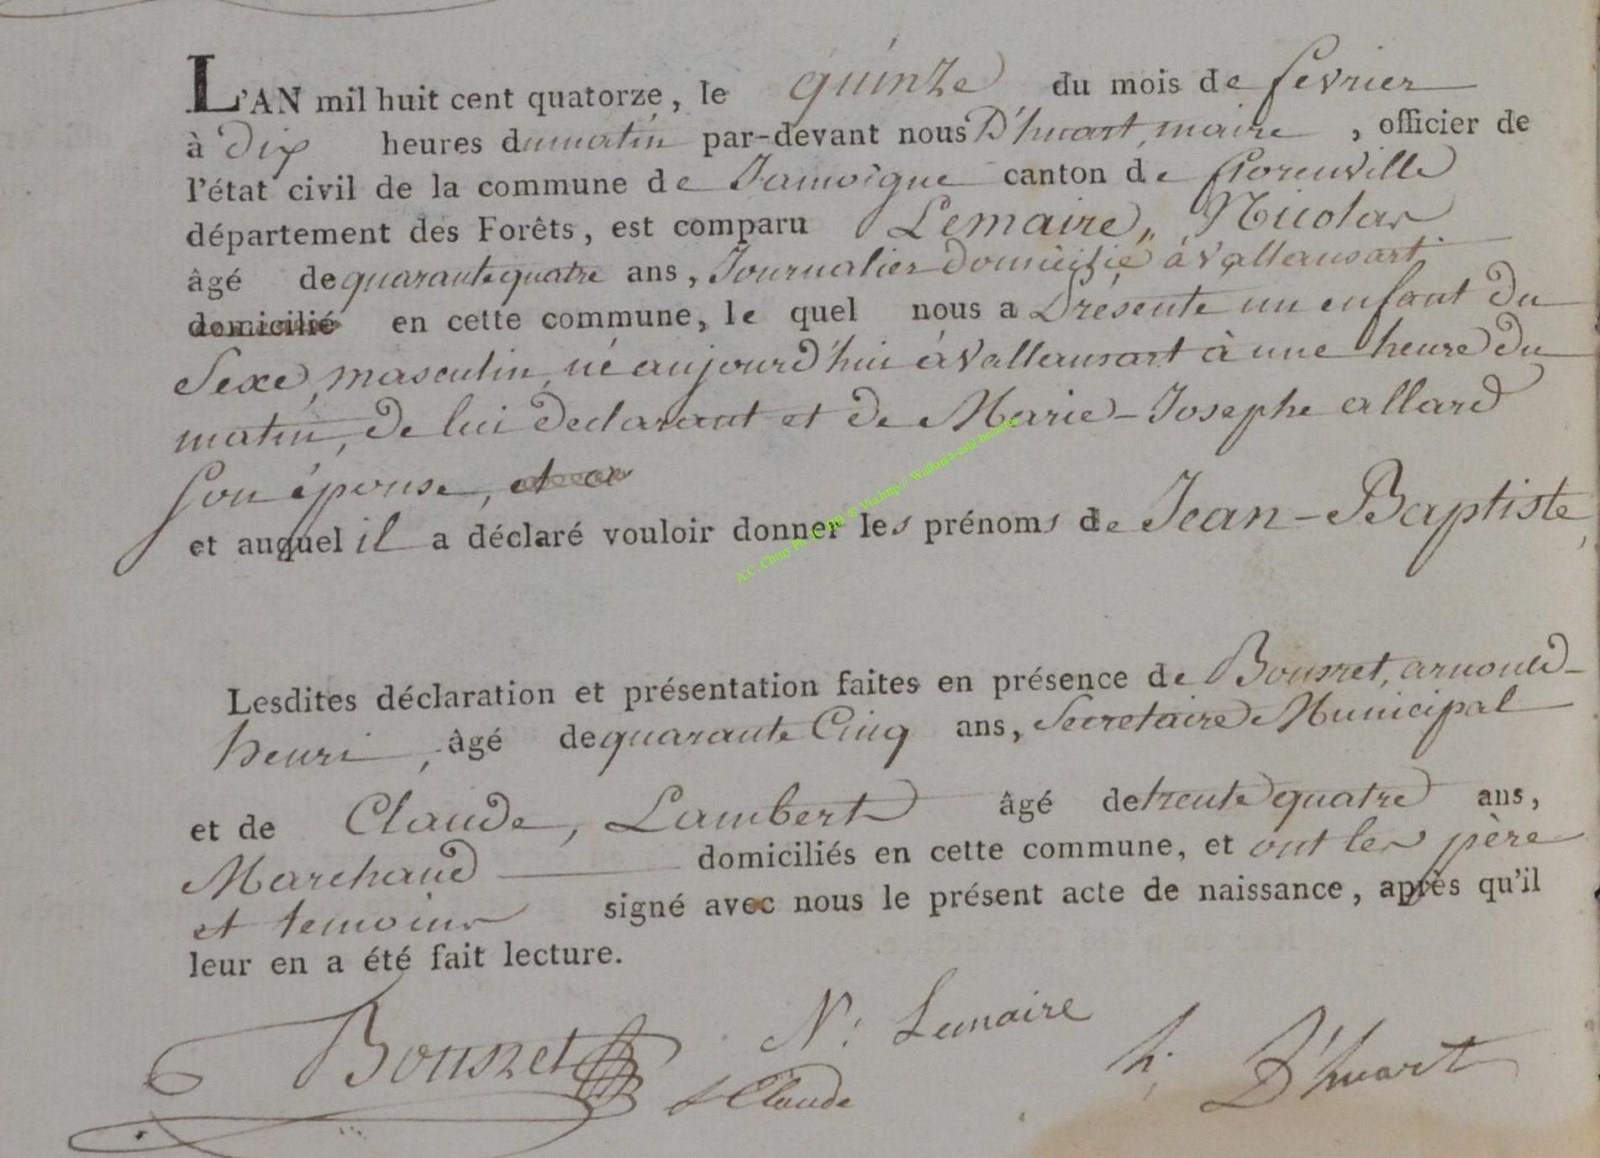 L'AN mil huit cent quatorze, le quinze du mois de fevrier
à dix heures du matin par-devant nous D'huart, maire, officier de
l'état civil de la commune de Jamoigne canton de florenville
département des Forêts, est comparu Lemaire, Nicolas
âgé de quarante quatre ans, Journalier domicilié à Vallansart
domicilié en cette commune, le quel nous a présenté un enfant du
Sexe, masculin, né aujourd'hui à Vallansart à une heure du
matin, de lui declarant et de Marie-Josephe allard
son épouse, et a
et auquel il a déclaré vouloir donner les prénoms de Jean-Baptiste,
Lesdites déclaration et présentation faites en présence de Bousret, arnould-
henri, âgé de quarante Cinq ans, Secretaire Municipal
et de Claude, Lambert âgé de trente quatre ans,
Marchand domiciliés en cette commune, et ont les père
et temoins signé avec nous le présent acte de naissance, après qu'il
leur en a été fait lecture.
Bousret N: Lemaire h; D'huart
L Claude